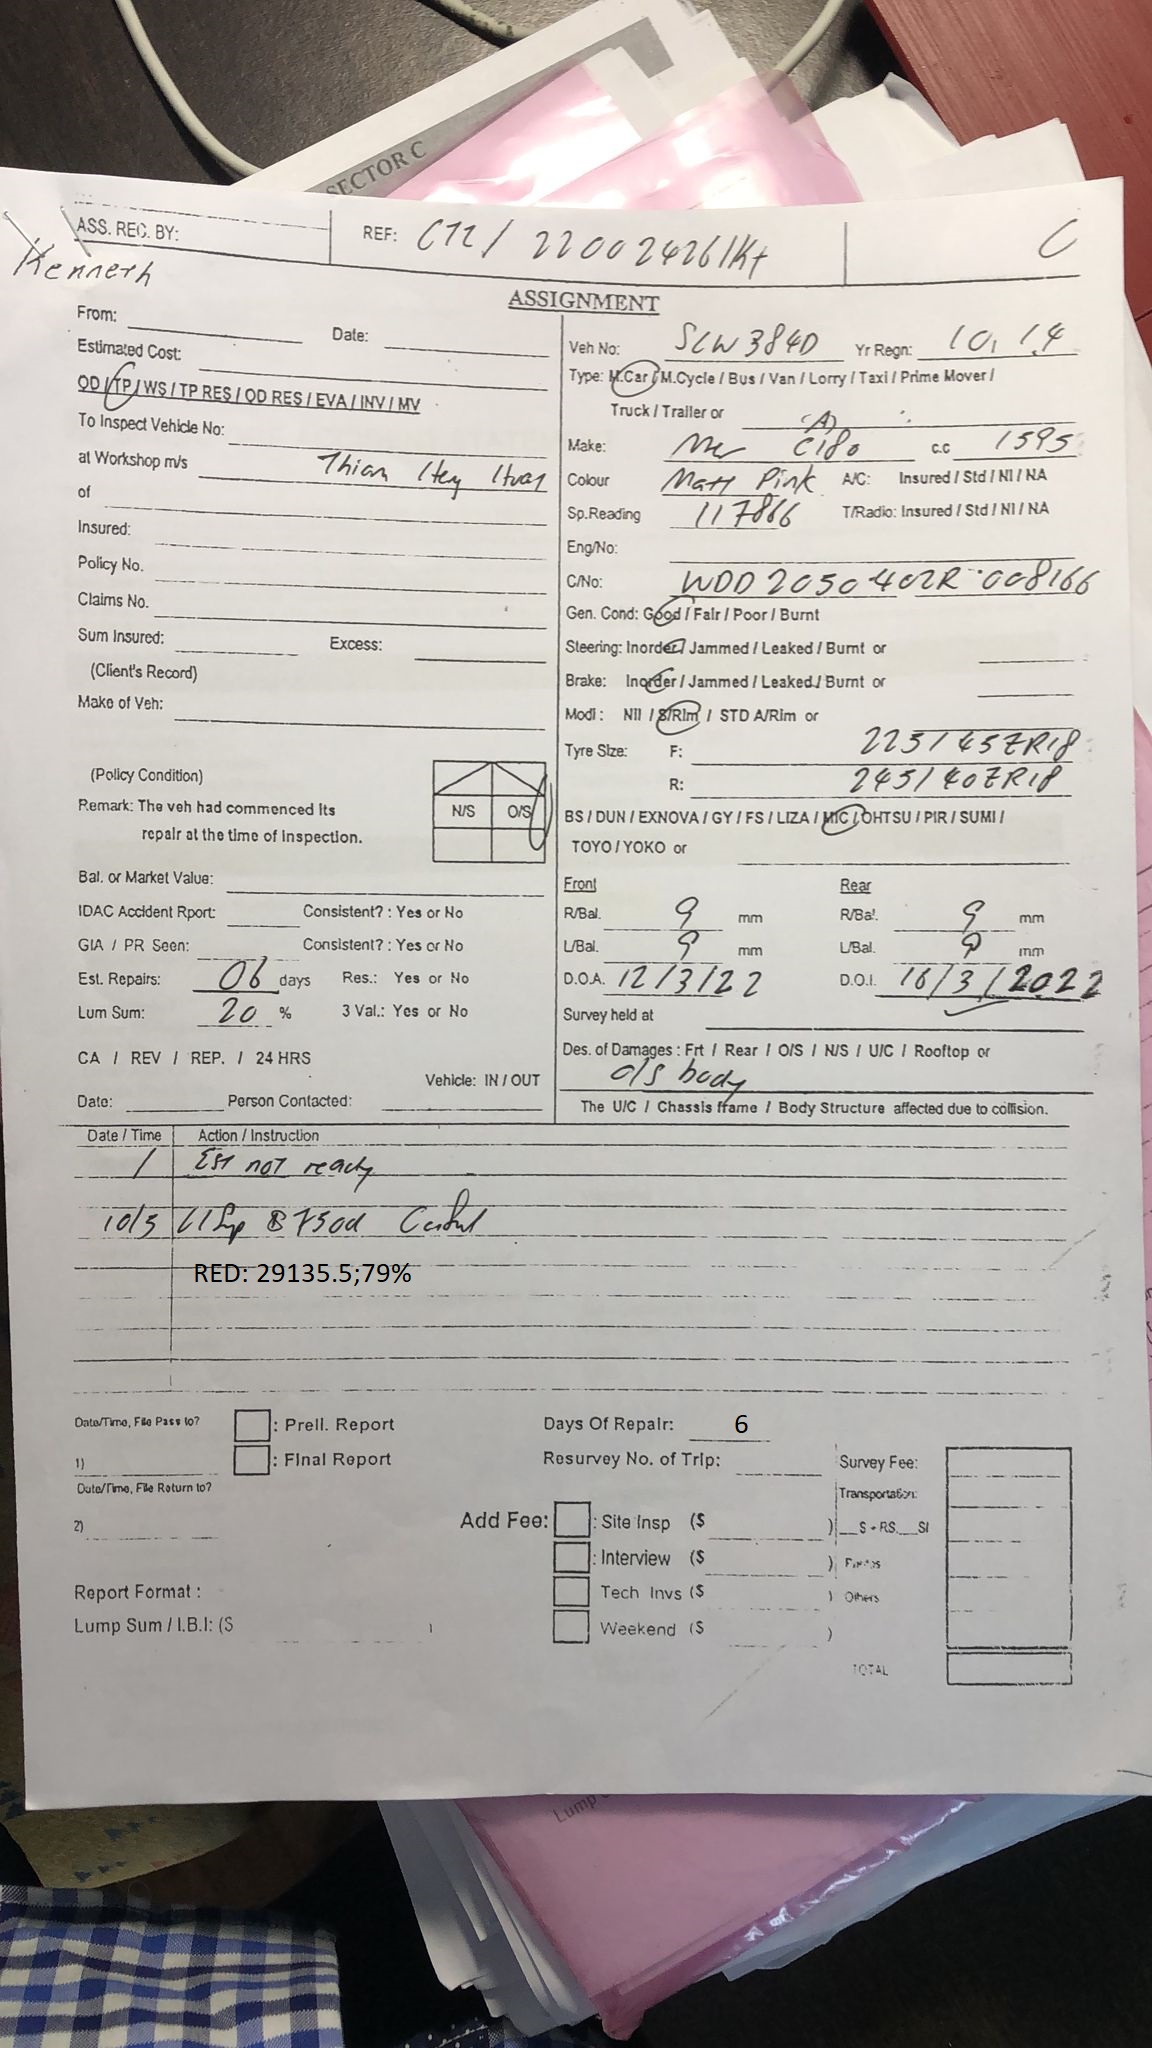 SECTOR C
ASS. REC. BY:
Kenneth
REF: CTL / 22002426/Kt
C
ASSIGNMENT
From: Date:
Estimated Cost:
OD / TP / WS / TP RES / OD RES / EVA / INV / MV
To Inspect Vehicle No:
at Workshop m/s Thiam Hey Huay
of
Insured:
Policy No.
Claims No.
Sum Insured: Excess:
(Client's Record)
Make of Veh:
(Policy Condition)
Remark: The veh had commenced its
repair at the time of inspection.
N/S O/S
Bal. or Market Value:
IDAC Accident Rport: Consistent? : Yes or No
GIA / PR Seen: Consistent? : Yes or No
Est. Repairs: 06 days Res.: Yes or No
Lum Sum: 20 % 3 Val.: Yes or No
CA / REV / REP. / 24 HRS
Vehicle: IN / OUT
Date: Person Contacted:
Veh No: SLW384D Yr Regn: 10, 14
Type: M.Car / M.Cycle / Bus / Van / Lorry / Taxi / Prime Mover /
Truck / Trailer or (A)
Make: Mer C180 c.c 1595
Colour Matt Pink A/C: Insured / Std / NI / NA
Sp.Reading 117866 T/Radio: Insured / Std / NI / NA
Eng/No:
C/No: WDD2050402R008166
Gen. Cond: Good / Fair / Poor / Burnt
Steering: Inorder / Jammed / Leaked / Burnt or
Brake: Inorder / Jammed / Leaked / Burnt or
Modi: Nil / S/Rim / STD A/Rim or
Tyre Size: F: 225/45ZR18
R: 245/40ZR18
BS / DUN / EXNOVA / GY / FS / LIZA / MIC / OHTSU / PIR / SUMI /
TOYO / YOKO or
Front Rear
R/Bal. 9 mm R/Bal. 9 mm
L/Bal. 9 mm L/Bal. 9 mm
D.O.A. 12/3/22 D.O.I. 16/3/2022
Survey held at
Des. of Damages : Frt / Rear / O/S / N/S / U/C / Rooftop or
o/s body
The U/C / Chassis frame / Body Structure affected due to collision.
Date / Time Action / Instruction
/ Est not ready
10/5
RED: 29135.5;79%
Date/Time, File Pass to?
: Prell. Report
Days Of Repair: 6
1)
: Final Report
Resurvey No. of Trip:
Survey Fee:
Date/Time, File Return to?
Transportation:
2)
Add Fee: : Site Insp ($ ) __S + RS.__SI
: Interview ($ )
Report Format :
Tech Invs ($ ) Others
Lump Sum / I.B.I: ($ )
Weekend ($ )
TOTAL
Lump